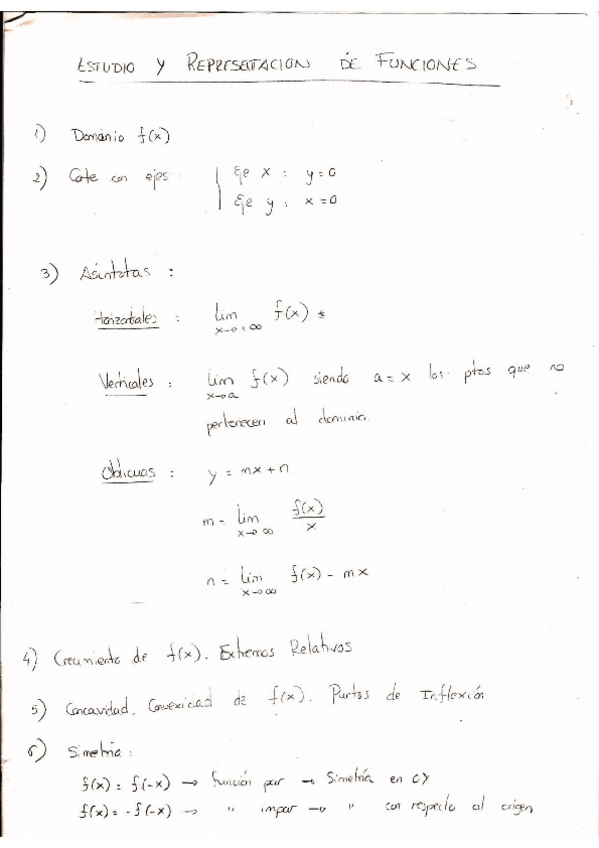 ESTUDIO Y REPRESETACION DE FUNCIONES
1) Dominio f(x)
2) Corte con ejes: Eje x : y = 0
Eje y : x = 0
3) Asíntotas :
Horizontales : lim f(x)
x→+∞
Verticales : lim f(x) siendo a = x los ptos que no
x→a
pertenecen al dominio.
Oblicuas : y = mx + n
m = lim f(x)/x
x→∞
n = lim f(x) - mx
x→∞
4) Crecimiento de f(x). Extremos Relativos
5) Concavidad, Convexidad de f(x). Puntos de Inflexión
6) Simetría :
f(x) = f(-x) → función par → Simetría en OY
f(x) = -f(-x) → " impar → " con respecto al origen